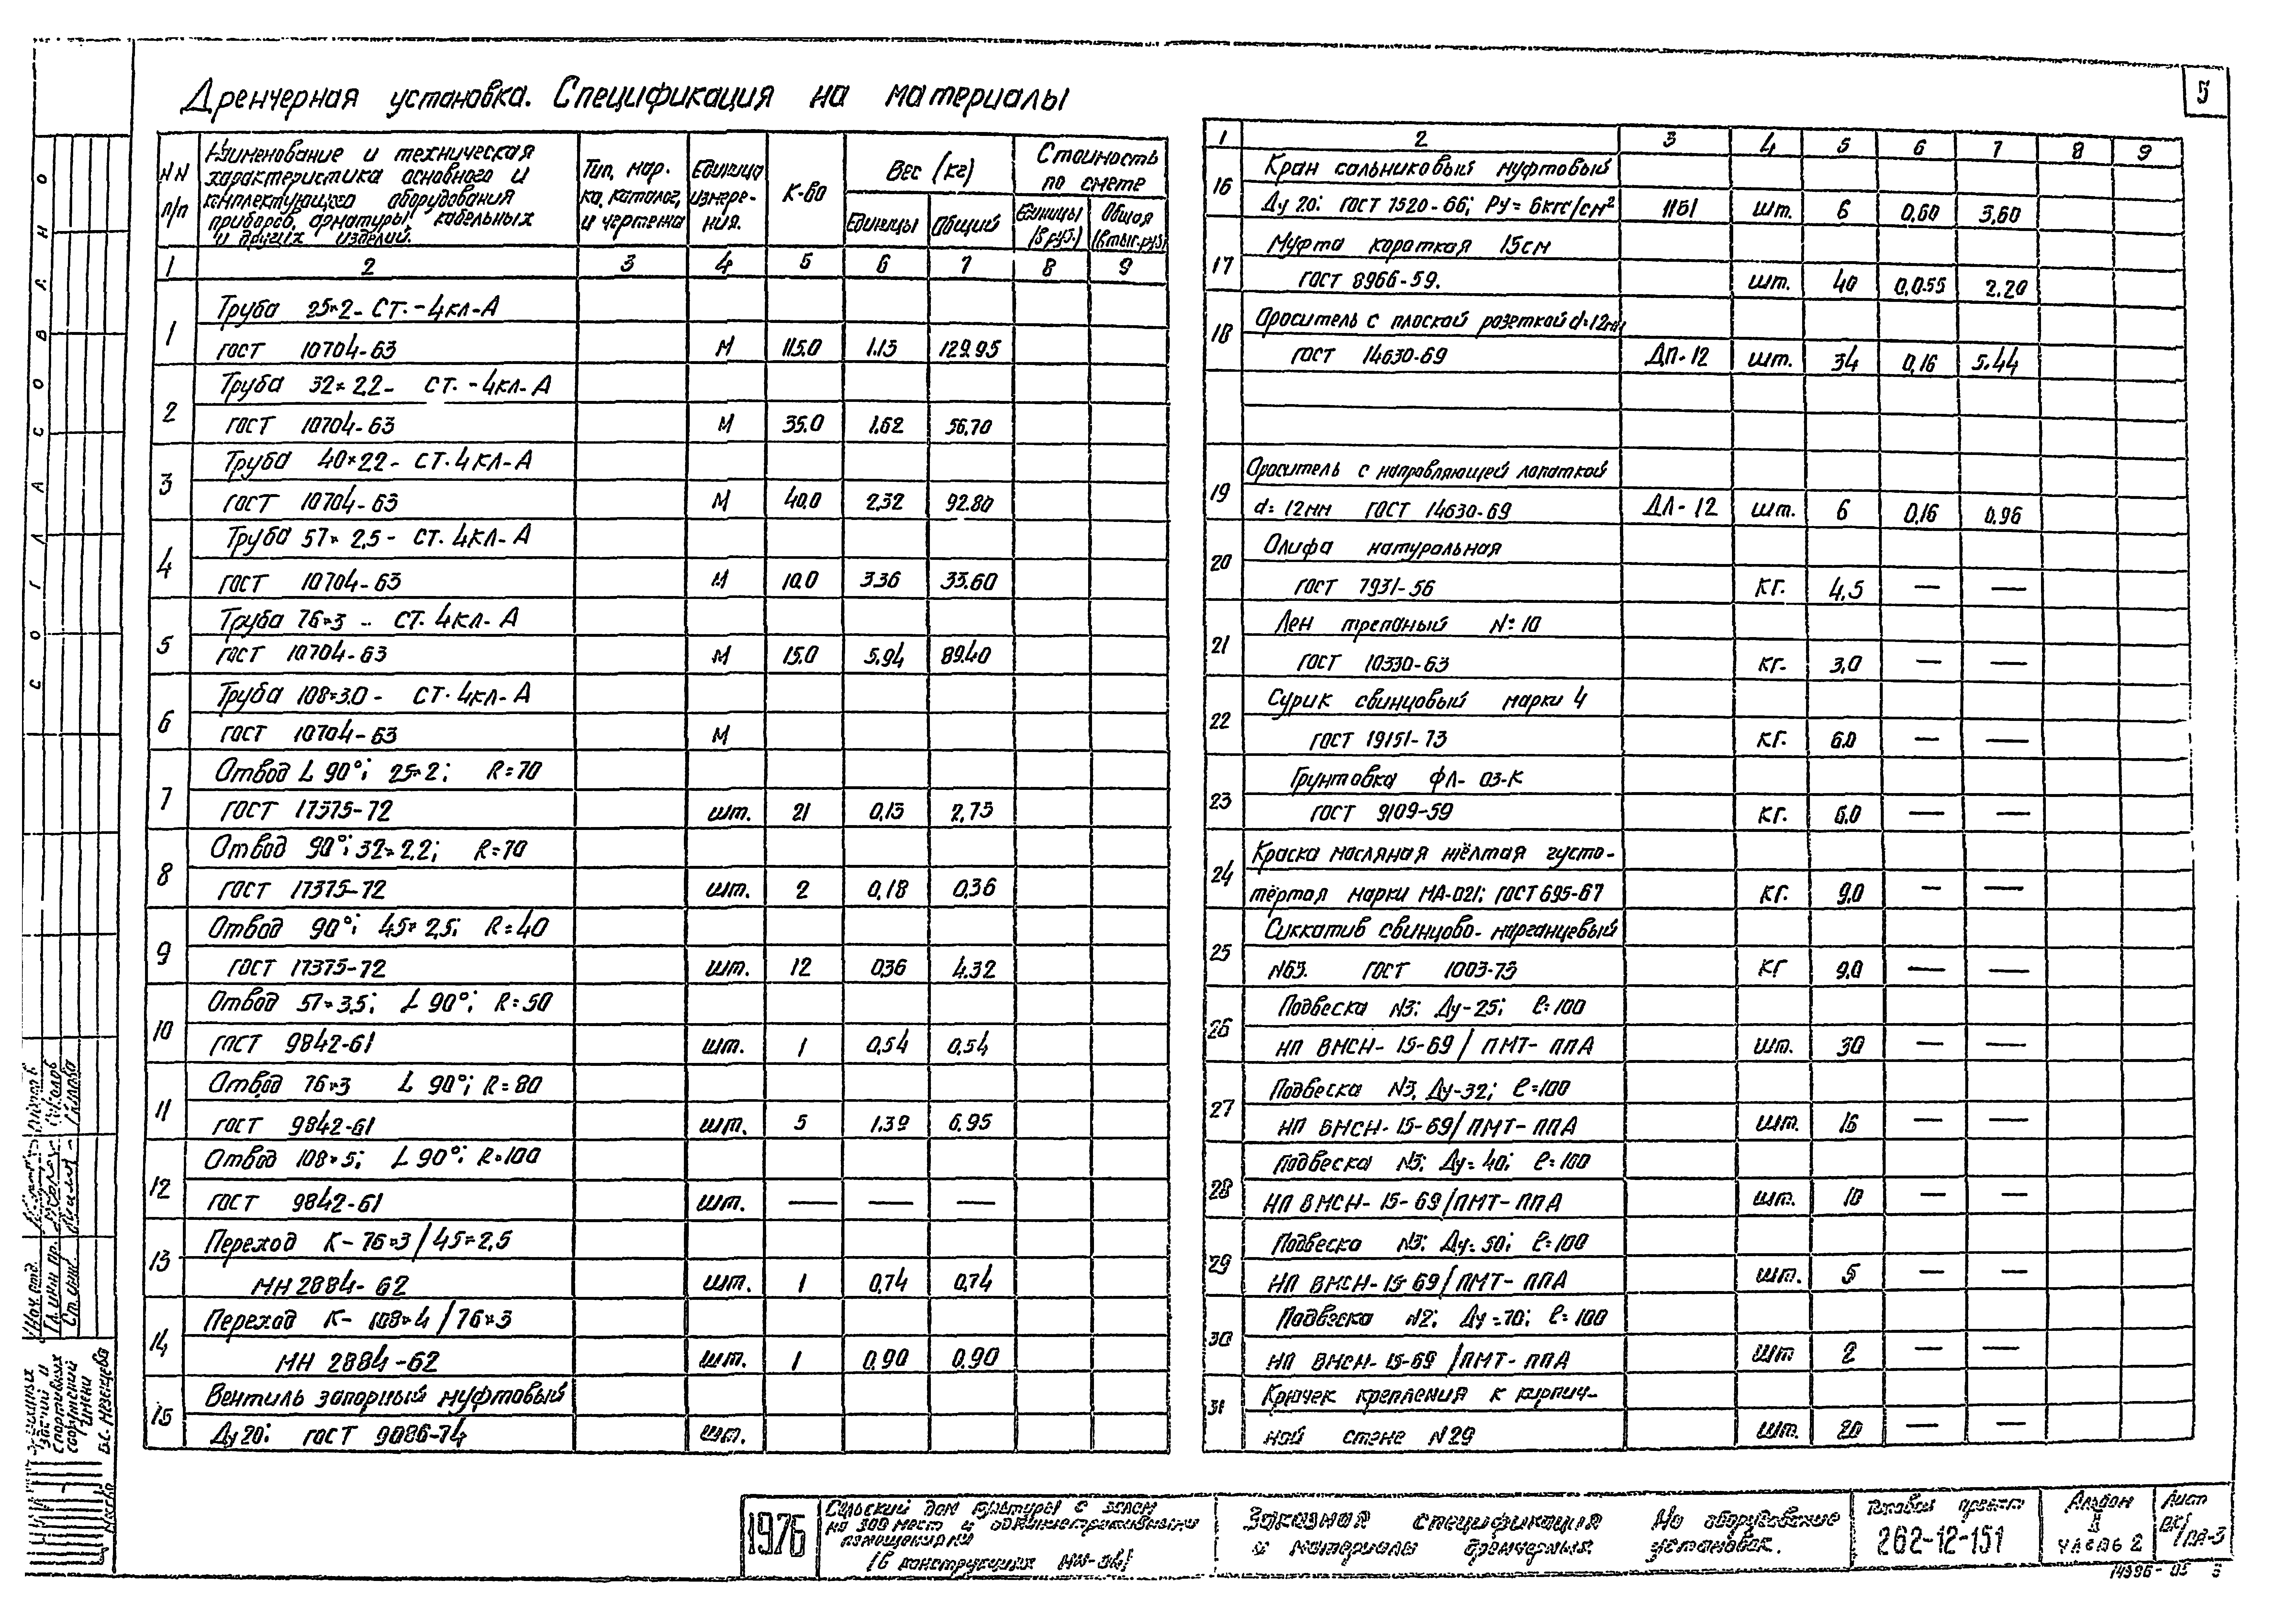 5
Дренчерная установка. Спецификация на материалы
NN п/п
Наименование и техническая
характеристика основного и
комплектующего оборудования
приборов, арматуры, кабельных
и других изделий.
Тип, мар-
ка, каталог,
и чертежа
Единица
измере-
ния.
К-во
Вес (кг)
Единицы
Общий
Стоимость
по смете
Единицы
(в руб.)
Общая
(в тыс.руб)
1 2 3 4 5 6 7 8 9
1 Труба 25×2- СТ.-4кл-А
ГОСТ 10704-63 М 115.0 1.13 129.95
2 Труба 32×2.2- СТ.-4кл-А
ГОСТ 10704-63 М 35.0 1.62 56.70
3 Труба 40×22- СТ.4КЛ-А
ГОСТ 10704-63 М 40.0 2.32 92.80
4 Труба 57×2,5- СТ.4КЛ-А
ГОСТ 10704-63 М 10.0 3.36 33.60
5 Труба 76×3 - СТ.4КЛ-А
ГОСТ 10704-63 М 15.0 5.94 89.40
6 Труба 108×3.0- СТ.4КЛ-А
ГОСТ 10704-63 М
7 Отвод L 90°; 25×2; R=70
ГОСТ 17375-72 шт. 21 0,13 2.73
8 Отвод 90°; 32×2.2; R=70
ГОСТ 17375-72 шт. 2 0,18 0,36
9 Отвод 90°; 45×2,5; R=40
ГОСТ 17375-72 шт. 12 0,36 4.32
10 Отвод 57×3,5; L 90°; R=50
ГОСТ 9842-61 шт. 1 0,54 0,54
11 Отвод 76×3 L 90°; R=80
ГОСТ 9842-61 шт. 5 1.39 6.95
12 Отвод 108×5; L 90°; R=100
ГОСТ 9842-61 шт. — — —
13 Переход К-76×3/45×2,5
МН 2884-62 шт. 1 0,74 0,74
14 Переход К-108×4/76×3
МН 2884-62 шт. 1 0.90 0.90
15 Вентиль запорный муфтовый
Ду20; ГОСТ 9086-74 шт.
1 2 3 4 5 6 7 8 9
16 Кран сальниковый муфтовый
Ду 20; ГОСТ 7520-66; Ру=6кгс/см² 11Б1 шт. 6 0,60 3,60
17 Муфта короткая 15см
ГОСТ 8966-59. шт. 40 0,055 2.20
18 Ороситель с плоской розеткой d=12мм
ГОСТ 14630-69 ДП-12 шт. 34 0,16 5.44
19 Ороситель с направляющей лопаткой
d=12мм ГОСТ 14630-69 ДЛ-12 шт. 6 0,16 0,96
20 Олифа натуральная
ГОСТ 7931-56 кг. 4,5 — —
21 Лен трепаный №10
ГОСТ 10330-63 кг. 3,0 — —
22 Сурик свинцовый марки 4
ГОСТ 19151-73 кг. 6.0 — —
23 Грунтовка ФЛ-03-К
ГОСТ 9109-59 кг. 6.0 — —
24 Краска масляная жёлтая густо-
тёртая марки МА-021; ГОСТ 695-67 кг. 9.0 — —
25 Сиккатив свинцово-марганцевый
N63. ГОСТ 1003-73 кг 9,0 — —
26 Подвеска N3; Ду-25; ℓ=100
НП ВМСН-15-69/ПМТ-ППА шт. 30 — —
27 Подвеска N3, Ду-32; ℓ=100
НП ВМСН-15-69/ПМТ-ППА шт. 16 — —
28 Подвеска N3; Ду=40; ℓ=100
НП ВМСН-15-69/ПМТ-ППА шт. 10 — —
29 Подвеска N3; Ду=50; ℓ=100
НП ВМСН-15-69/ПМТ-ППА шт. 5 — —
30 Подвеска N2; Ду=70; ℓ=100
НП ВМСН-15-69/ПМТ-ППА шт 2 — —
31 Крючек крепления к кирпич-
ной стене N29 шт. 20 — —
СОГЛАСОВАНО
Нач. отд.
Гл. инж. пр.
Ст. инж.
зданий и
спортивных
сооружений
имени
Б.С. Мезенцева
1976
Сельский дом культуры с залом
на 300 мест и административными
помещениями
(в конструкциях
Заказная спецификация на оборудование
и материалы дренчерных установок.
Типовой проект
262-12-151
Альбом
II
часть 2
Лист
14396-05 3